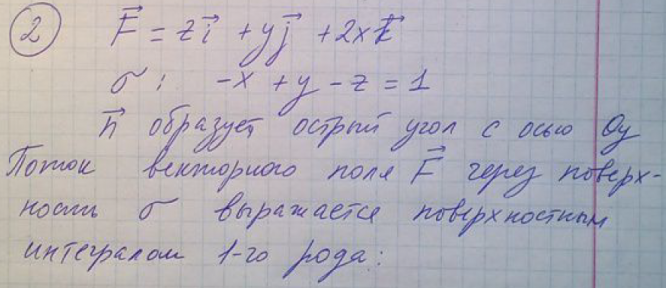 2 F⃗ = zi⃗ + yj⃗ + 2xk⃗
σ: -x + y - z = 1
n⃗ образует острый угол с осью Oy
Поток векторного поля F⃗ через поверх-
ность σ выражается поверхностным
интегралом 1-го рода: